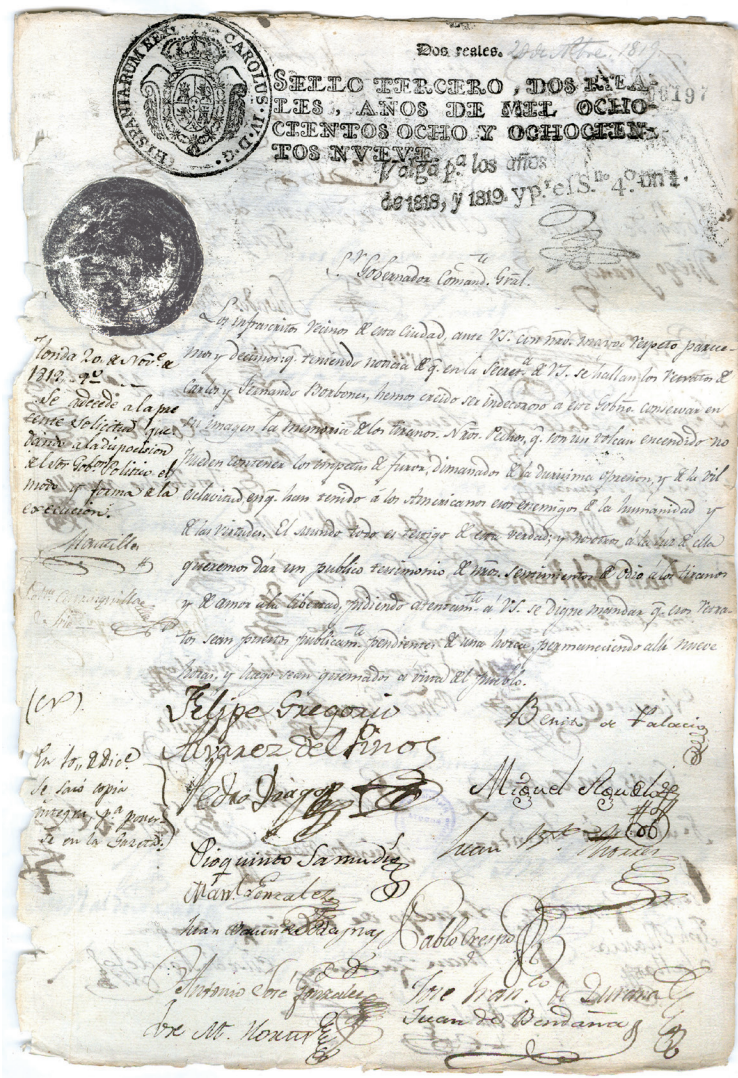 Dos reales.
HISPANIARUM REX CAROLUS IV D. G.
SELLO TERCERO, DOS REA-
LES, AÑOS DE MIL OCHO-
CIENTOS OCHO Y OCHOCIEN-
TOS NUEVE.
197
Valga pª. los años
de 1818, y 1819. y pʳ. el Sⁿᵒ 4º.
Sʳ. Gobernador Comandᵗᵉ. Gñal.
Los infrascritos vecinos de esta Ciudad, ante VS. con nro. mayor respeto parece-
mos y decimos: q. teniendo noticia de q. en la Secretª. de VS. se hallan los retratos de
Carlos y Fernando Borbones, hemos creido ser indecoroso a este Gobno. conservar en
su imagen la memoria de los tiranos. Nros. Pechos, q. son un volcan encendido no
pueden contener los impetus de furor, dimanados de la durisima opresion, y de la vil
esclavitud en q. han tenido á los Americanos esos enemigos de la humanidad y
de las virtudes. El mundo todo es testigo de esta verdad; y nosotros á la luz de ella
queremos dár un publico testimonio de nros. sentimientos de odio a los tiranos
y de amor a la libertad, pidiendo atentamᵗᵉ. á VS. se digne mandar q. esos retra-
tos sean puestos publicamᵗᵉ. pendientes de una horca, permaneciendo alli nueve
horas, y luego sean quemados a vista del pueblo.
Honda 20. de Novᵉ. de
1819. 9º
Se accede a la pre
sente solicitud, que
dando a la disposicion
del Sor. Gobor. Politico el
modo y forma de la
execucion.
Montilla
En 10,, de Dicᵉ.
se sacó copia
integra pª. poner-
se en la Gazeta.
Felipe Gregorio
Alvarez del Pino
Benito de Palacio
Pedro Drago
Miguel
Juan Bᵗᵃ.
Pioquinto Samudio
Manˡ. Gonzalez
Juan
Pablo Crespo
Antonio José Gonzalez
Jose Franᶜᵒ. de Durana
Jose M.
Juan de Bendaña